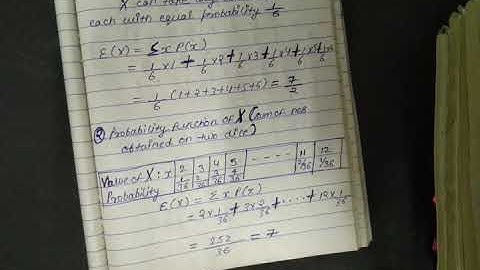 X can take
each with equal probability 1/6
E(X) = Σ x P(x)
= 1/6 ×1 + 1/6 ×2 + 1/6 ×3 + 1/6 ×4 + 1/6 ×5 + 1/6 ×6
= 1/6 (1+2+3+4+5+6) = 7/2
② Probability function of X (sum of nos.
obtained on two dice)
Value of X: x 2 3 4 5 - - - - 11 12
Probability 1/36 2/36 3/36 4/36 2/36 1/36
E(X) = Σ x P(x)
= 2×1/36 + 3×2/36 + ..... + 12×1/36
= 252/36 = 7